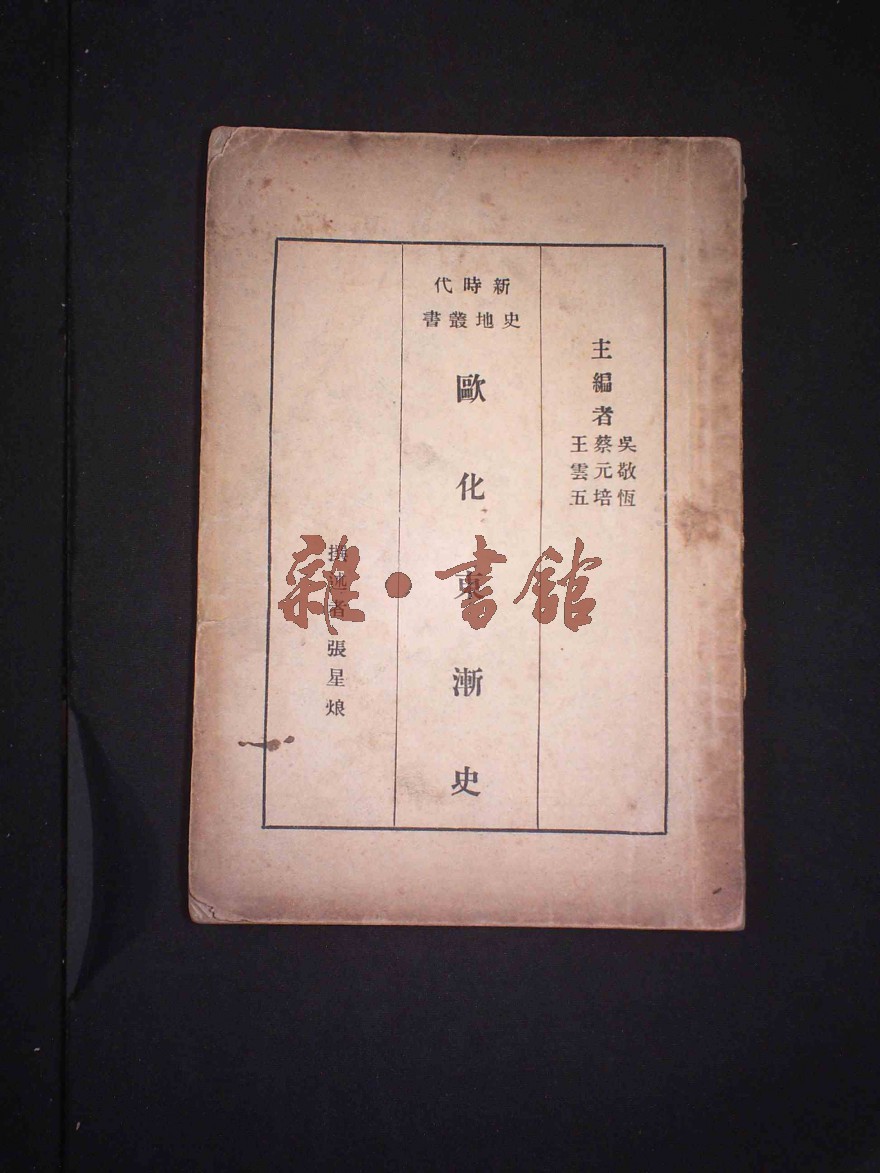 主編者
吳敬恆
蔡元培
王雲五
新時代
史地叢書
歐化東漸史
撰述者 張星烺
雜·書館